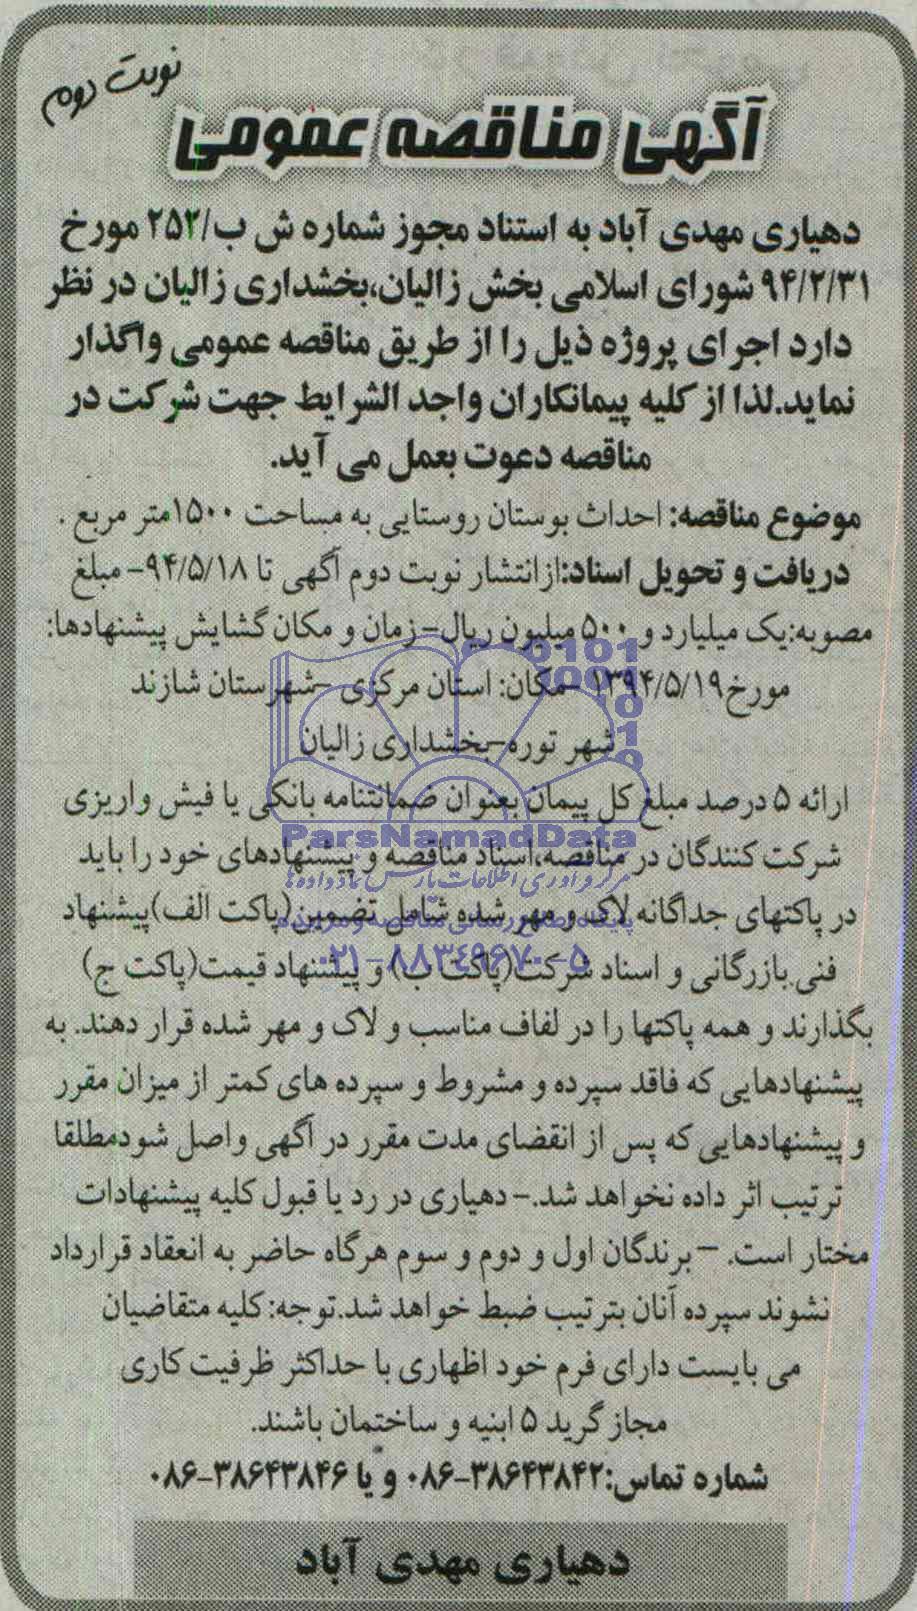 نوبت دوم
آگهی مناقصه عمومی
دهیاری مهدی آباد به استناد مجوز شماره ش ب/۲۵۲ مورخ
۹۴/۲/۳۱ شورای اسلامی بخش زالیان،بخشداری زالیان در نظر
دارد اجرای پروژه ذیل را از طریق مناقصه عمومی واگذار
نماید.لذا از کلیه پیمانکاران واجد الشرایط جهت شرکت در
مناقصه دعوت بعمل می آید.
موضوع مناقصه: احداث بوستان روستایی به مساحت ۱۵۰۰متر مربع .
دریافت و تحویل اسناد:ازانتشار نوبت دوم آگهی تا ۹۴/۵/۱۸- مبلغ
مصوبه:یک میلیارد و ۵۰۰ میلیون ریال- زمان و مکان گشایش پیشنهادها:
مورخ۱۳۹۴/۵/۱۹ -مکان: استان مرکزی -شهرستان شازند
شهر توره-بخشداری زالیان
ارائه ۵ درصد مبلغ کل پیمان بعنوان ضمانتنامه بانکی یا فیش واریزی
ParsNamadData
شرکت کنندگان در مناقصه،اسناد مناقصه و پیشنهادهای خود را باید
مرکز فرآوری اطلاعات پارس نماد داده ها
در پاکتهای جداگانه لاک و مهر شده شامل تضمین(پاکت الف)پیشنهاد
پایگاه اطلاع رسانی مناقصه و مزایده
فنی بازرگانی و اسناد شرکت(پاکت ب) و پیشنهاد قیمت(پاکت ج)
۰۲۱-۸۸۳۴۹۶۷۰-۵
بگذارند و همه پاکتها را در لفاف مناسب و لاک و مهر شده قرار دهند. به
پیشنهادهایی که فاقد سپرده و مشروط و سپرده های کمتر از میزان مقرر
و پیشنهادهایی که پس از انقضای مدت مقرر در آگهی واصل شودمطلقا
ترتیب اثر داده نخواهد شد.- دهیاری در رد یا قبول کلیه پیشنهادات
مختار است. - برندگان اول و دوم و سوم هرگاه حاضر به انعقاد قرارداد
نشوند سپرده آنان بترتیب ضبط خواهد شد.توجه:کلیه متقاضیان
می بایست دارای فرم خود اظهاری با حداکثر ظرفیت کاری
مجاز گرید ۵ ابنیه و ساختمان باشند.
شماره تماس:۳۸۶۴۳۸۴۲-۰۸۶ و یا ۳۸۶۴۳۸۴۶-۰۸۶
دهیاری مهدی آباد